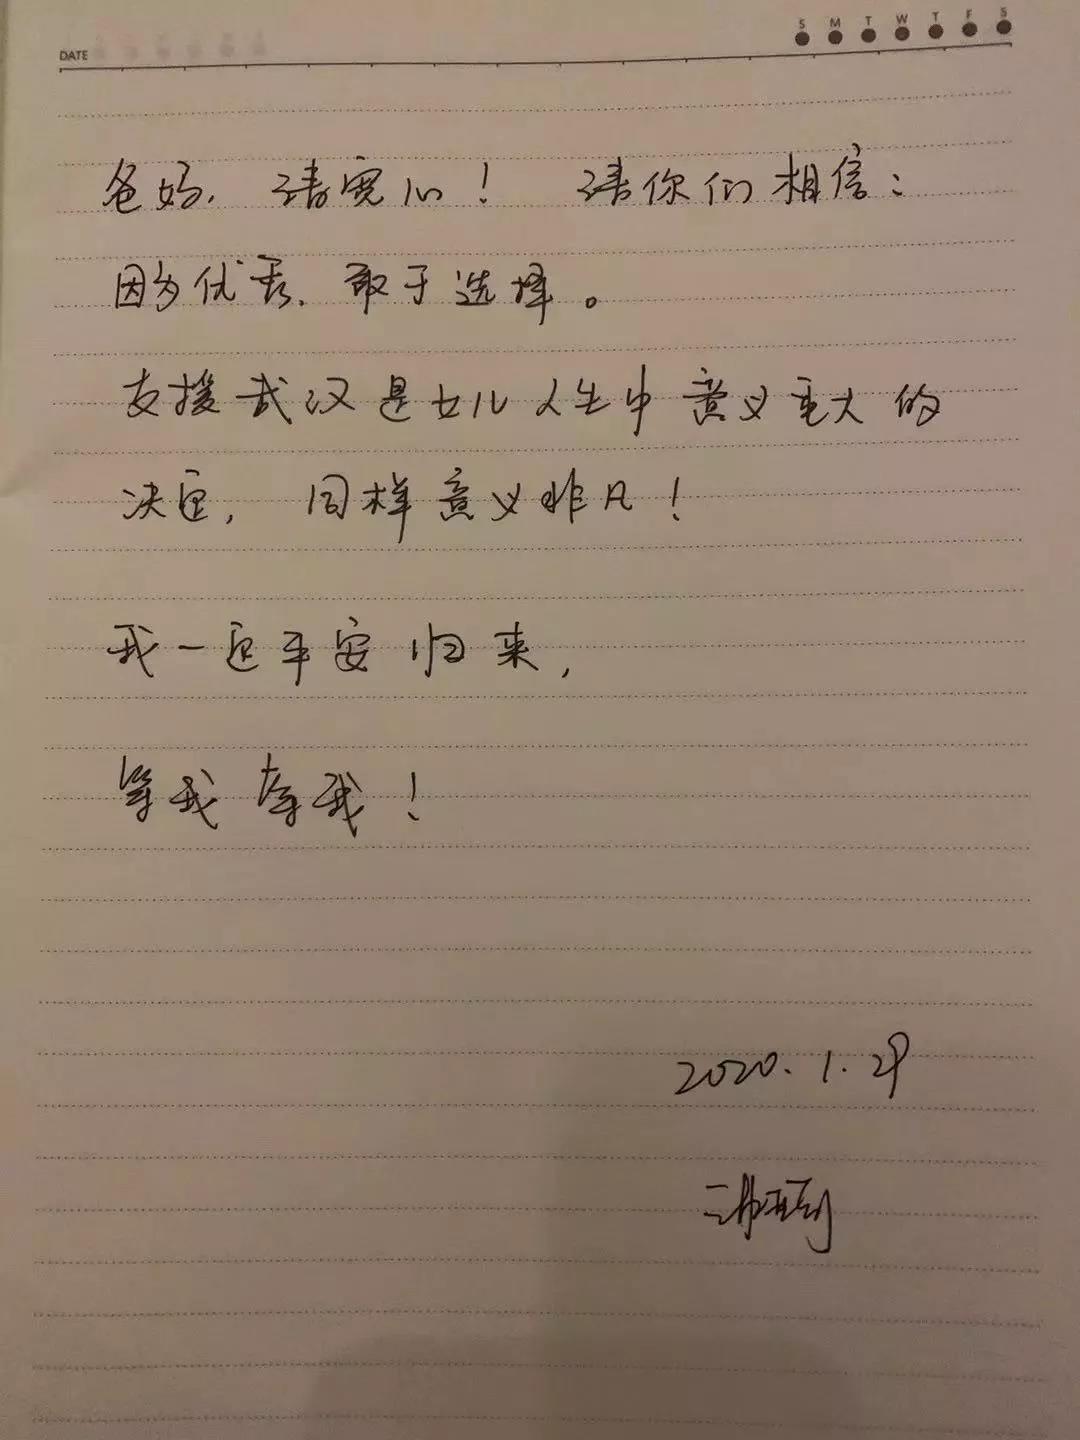 DATE
S M T W T F S
爸妈，请宽心！ 请你们相信：
因为优秀，敢于选择。
支援武汉是女儿人生中意义重大的
决定， 同样意义非凡！
我一定平安归来，
等我等我！
2020.1.29